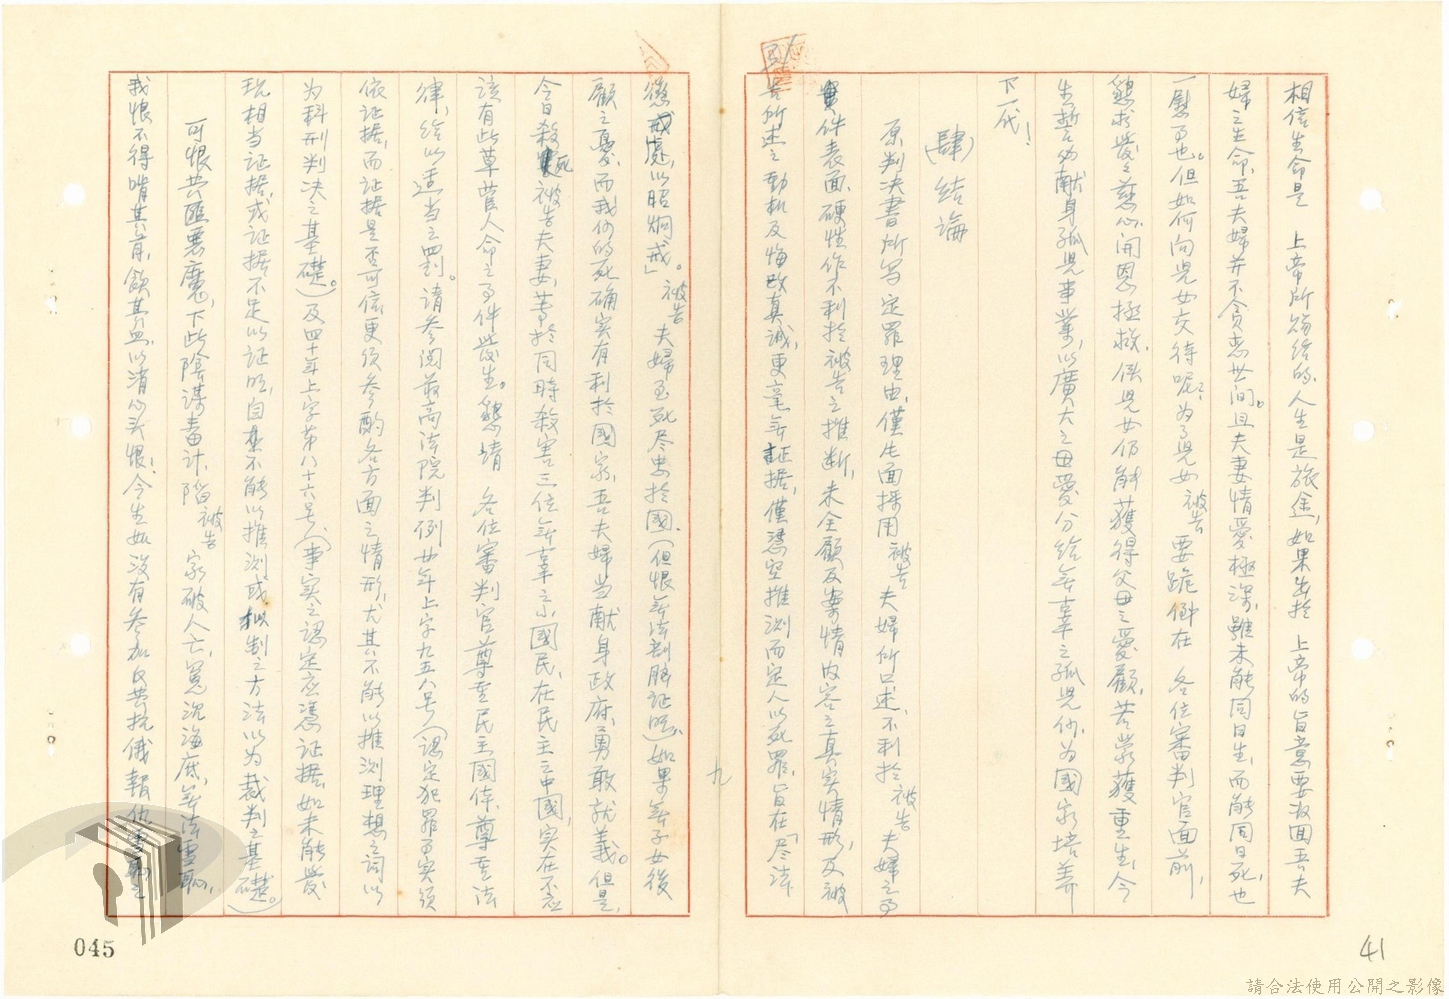 相信生命是　上帝所賜給的，人生是旅途，如果出於　上帝的旨意要收回吾夫
婦之生命，吾夫婦并不貪恋世间。且夫妻情愛極深，雖未能同日生，而能同日死，也
一慰事也。但如何向児女交待呢？为了児女被告要跪倒在　各位審判官面前，
懇求發之慈心，開恩拯救，俾児女仍能獲得父母之愛顧，若蒙獲重生，今
生誓必献身孤児事業，以廣大之母愛分给無辜之孤児们，为國家培養
下一代！
(肆)　结論
原判决書所写定罪理由，僅片面採用被告夫婦所口述，不利於被告夫婦之事
件表面，硬性作不利於被告之推断，未全顧及案情内容之真实情形，及被
告所述之動机及悔改真诚，更毫無証据，僅憑空推测而定人以死罪，旨在「尽法
懲戒處，以昭炯戒」。被告夫婦至死尽忠於國，(但恨無法剖腸证明)如果無子女後
顧之憂，而我们的死确实有利於國家，吾夫婦当献身政府，勇敢就義。但是，
今日殺死被告夫妻，等於同時殺害三位無辜之小國民，在民主之中國，实在不应
该有此草菅人命之事件發生。懇请　各位審判官尊重民主國体，尊重法
律，给以适当之罰。请参阅最高法院判例廿年上字九五八号，(認定犯罪事实须
依证据，而证据是否可信，更须参酌各方面之情形，尤其不能以推测理想之词以
为科刑判决之基礎。)及四十年上字第八十六号，(事实之認定应憑证据，如未能發
現相当证据，或证据不足以证明，自不能以推测或拟制之方法以为裁判之基礎。)
可恨共匪惡魔，下此陰謀毒计，陷被告家破人亡，冤沉海底，無法雪恥，
我恨不得啃其骨，飲其血，以消心头恨！今生如没有参加反共抗俄報仇雪恥之
九
045
41
請合法使用公開之影像